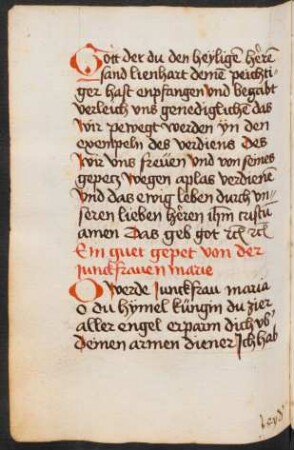 Gott der du den heyligē herrē
sand lienhart deinē peichti-
ger hast enpfangen und begabt
verleich uns genediglichē das
wir pewegt werden yn den
exempeln des verdiens des
wir uns freüen und von seines
gepetz wegen aplas verdienē
und das ewig leben durch un-
seren lieben herren ihm cristū
amen Das geb got rc rc
Ein guet gepet von der
junckfrauen marie
O werde junckfrau maria
o du hymel küngin du zier
aller engel erparm dich ub͛
deinen armen diener Ich hab
leyd